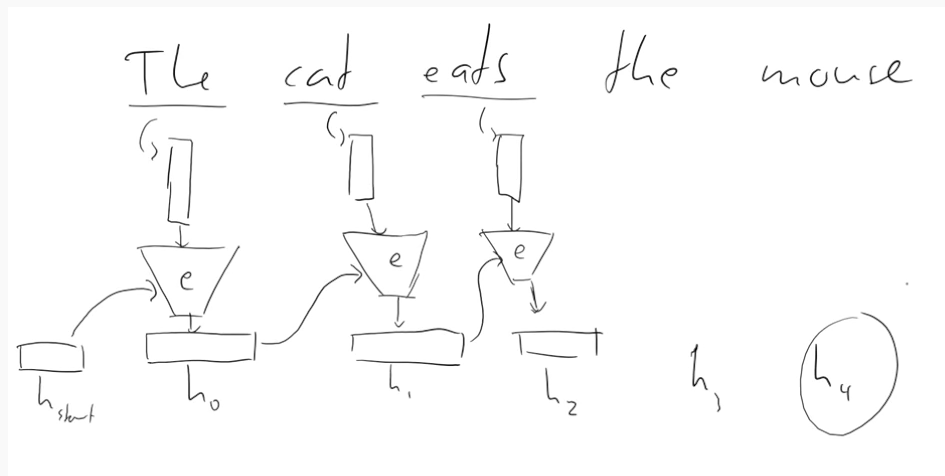 The cat eats the mouse
e e e
h_start h_0 h_1 h_2 h_3 h_4